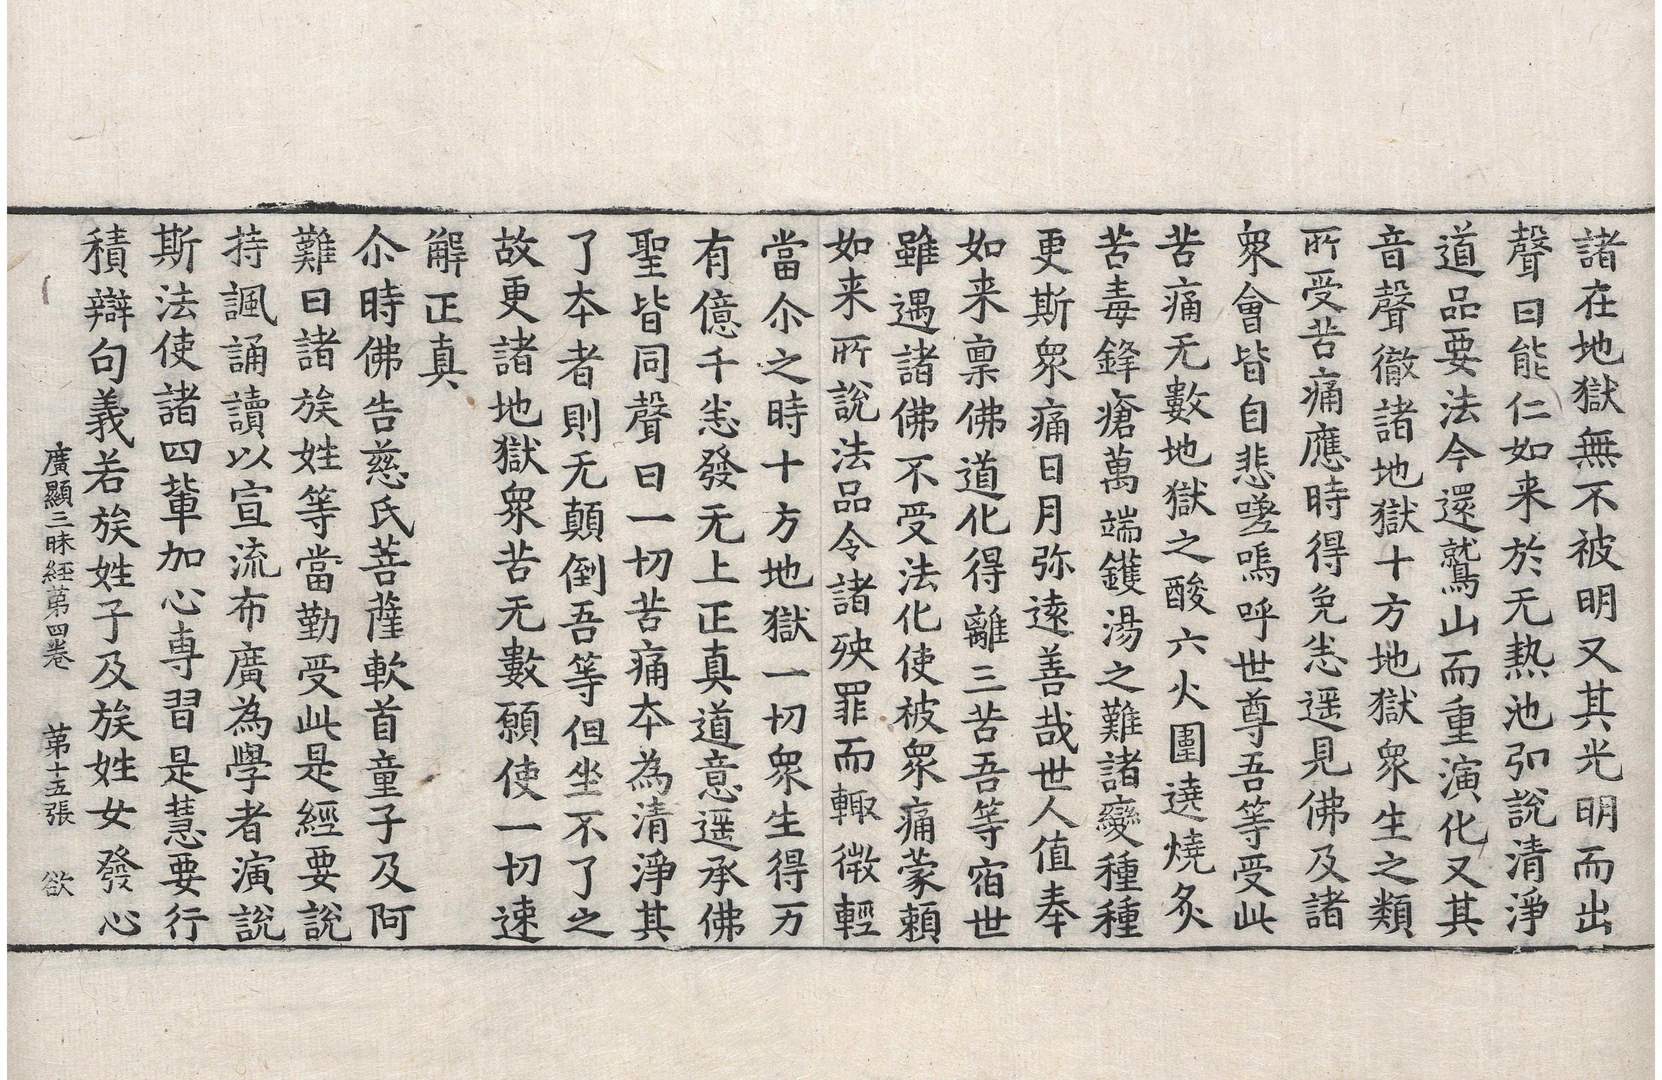 諸在地獄無不被明又其光明而出
聲曰能仁如来於无熱池弘說清淨
道品要法今還鷲山而重演化又其
音聲徹諸地獄十方地獄衆生之類
所受苦痛應時得免恙遥見佛及諸
衆會皆自悲嗟嗚呼世尊吾等受此
苦痛无數地獄之酸六火圍遶燒炙
苦毒鋒瘡萬端鑊湯之難諸變種種
更斯衆痛日月弥遠善哉世人值奉
如来禀佛道化得離三苦吾等宿世
雖遇諸佛不受法化使被衆痛蒙頼
如来所說法品令諸殃罪而輙微輕
當尒之時十方地獄一切衆生得万
有億千恙發无上正真道意遥承佛
聖皆同聲曰一切苦痛夲為清淨其
了夲者則无顛倒吾等但坐不了之
故更諸地獄衆苦无數願使一切速
解正真
尒時佛告慈氏菩薩軟首童子及阿
難曰諸族姓等當勤受此是經要說
持諷誦讀以宣流布廣為學者演說
斯法使諸四輩加心専習是慧要行
積辯句義若族姓子及族姓女發心
廣顯三昧経苐四卷 苐十五張 欲